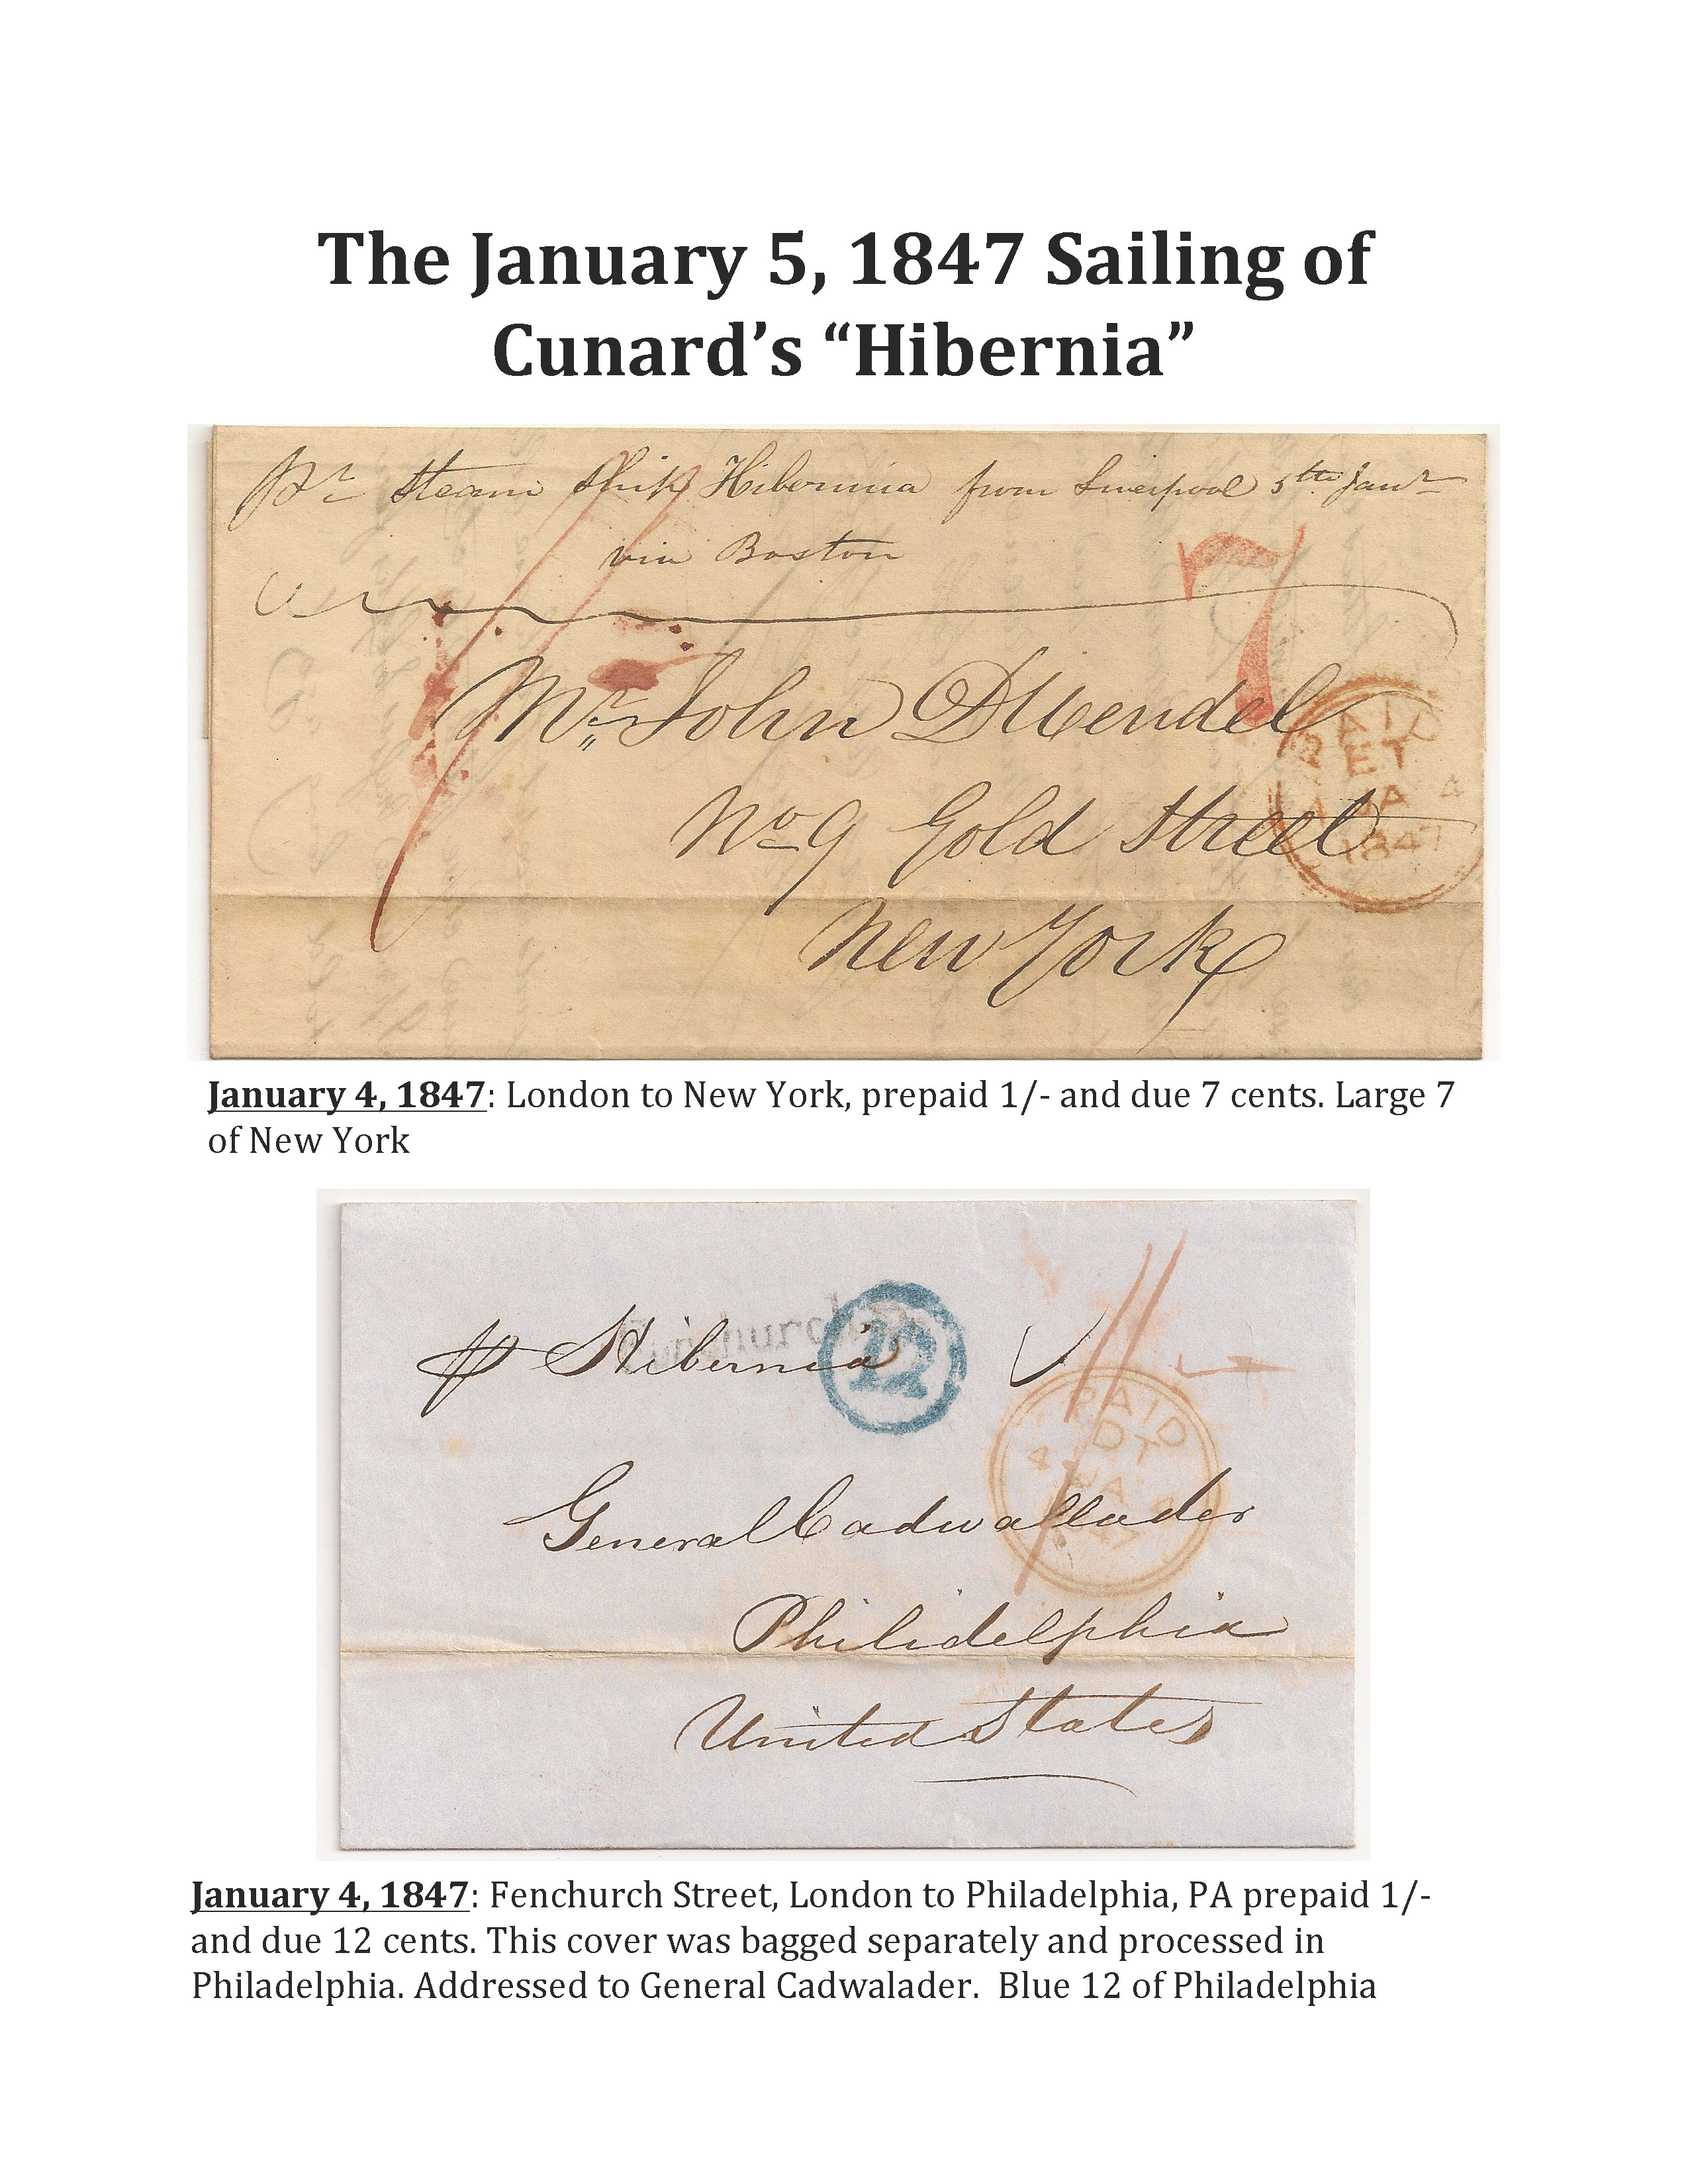 The January 5, 1847 Sailing of
Cunard’s “Hibernia”
pr Steam Ship Hibernia from Liverpool 5th Janr
via Boston
7
Mr John D Mendel
PAID
ET
JA 4
1847
No 9 Gold Street
New York
January 4, 1847: London to New York, prepaid 1/- and due 7 cents. Large 7
of New York
p Hibernia
12
1/-
PAID
DT
4 JA 4
General Cadwallader
Philidelphia
United States
January 4, 1847: Fenchurch Street, London to Philadelphia, PA prepaid 1/-
and due 12 cents. This cover was bagged separately and processed in
Philadelphia. Addressed to General Cadwalader.  Blue 12 of Philadelphia